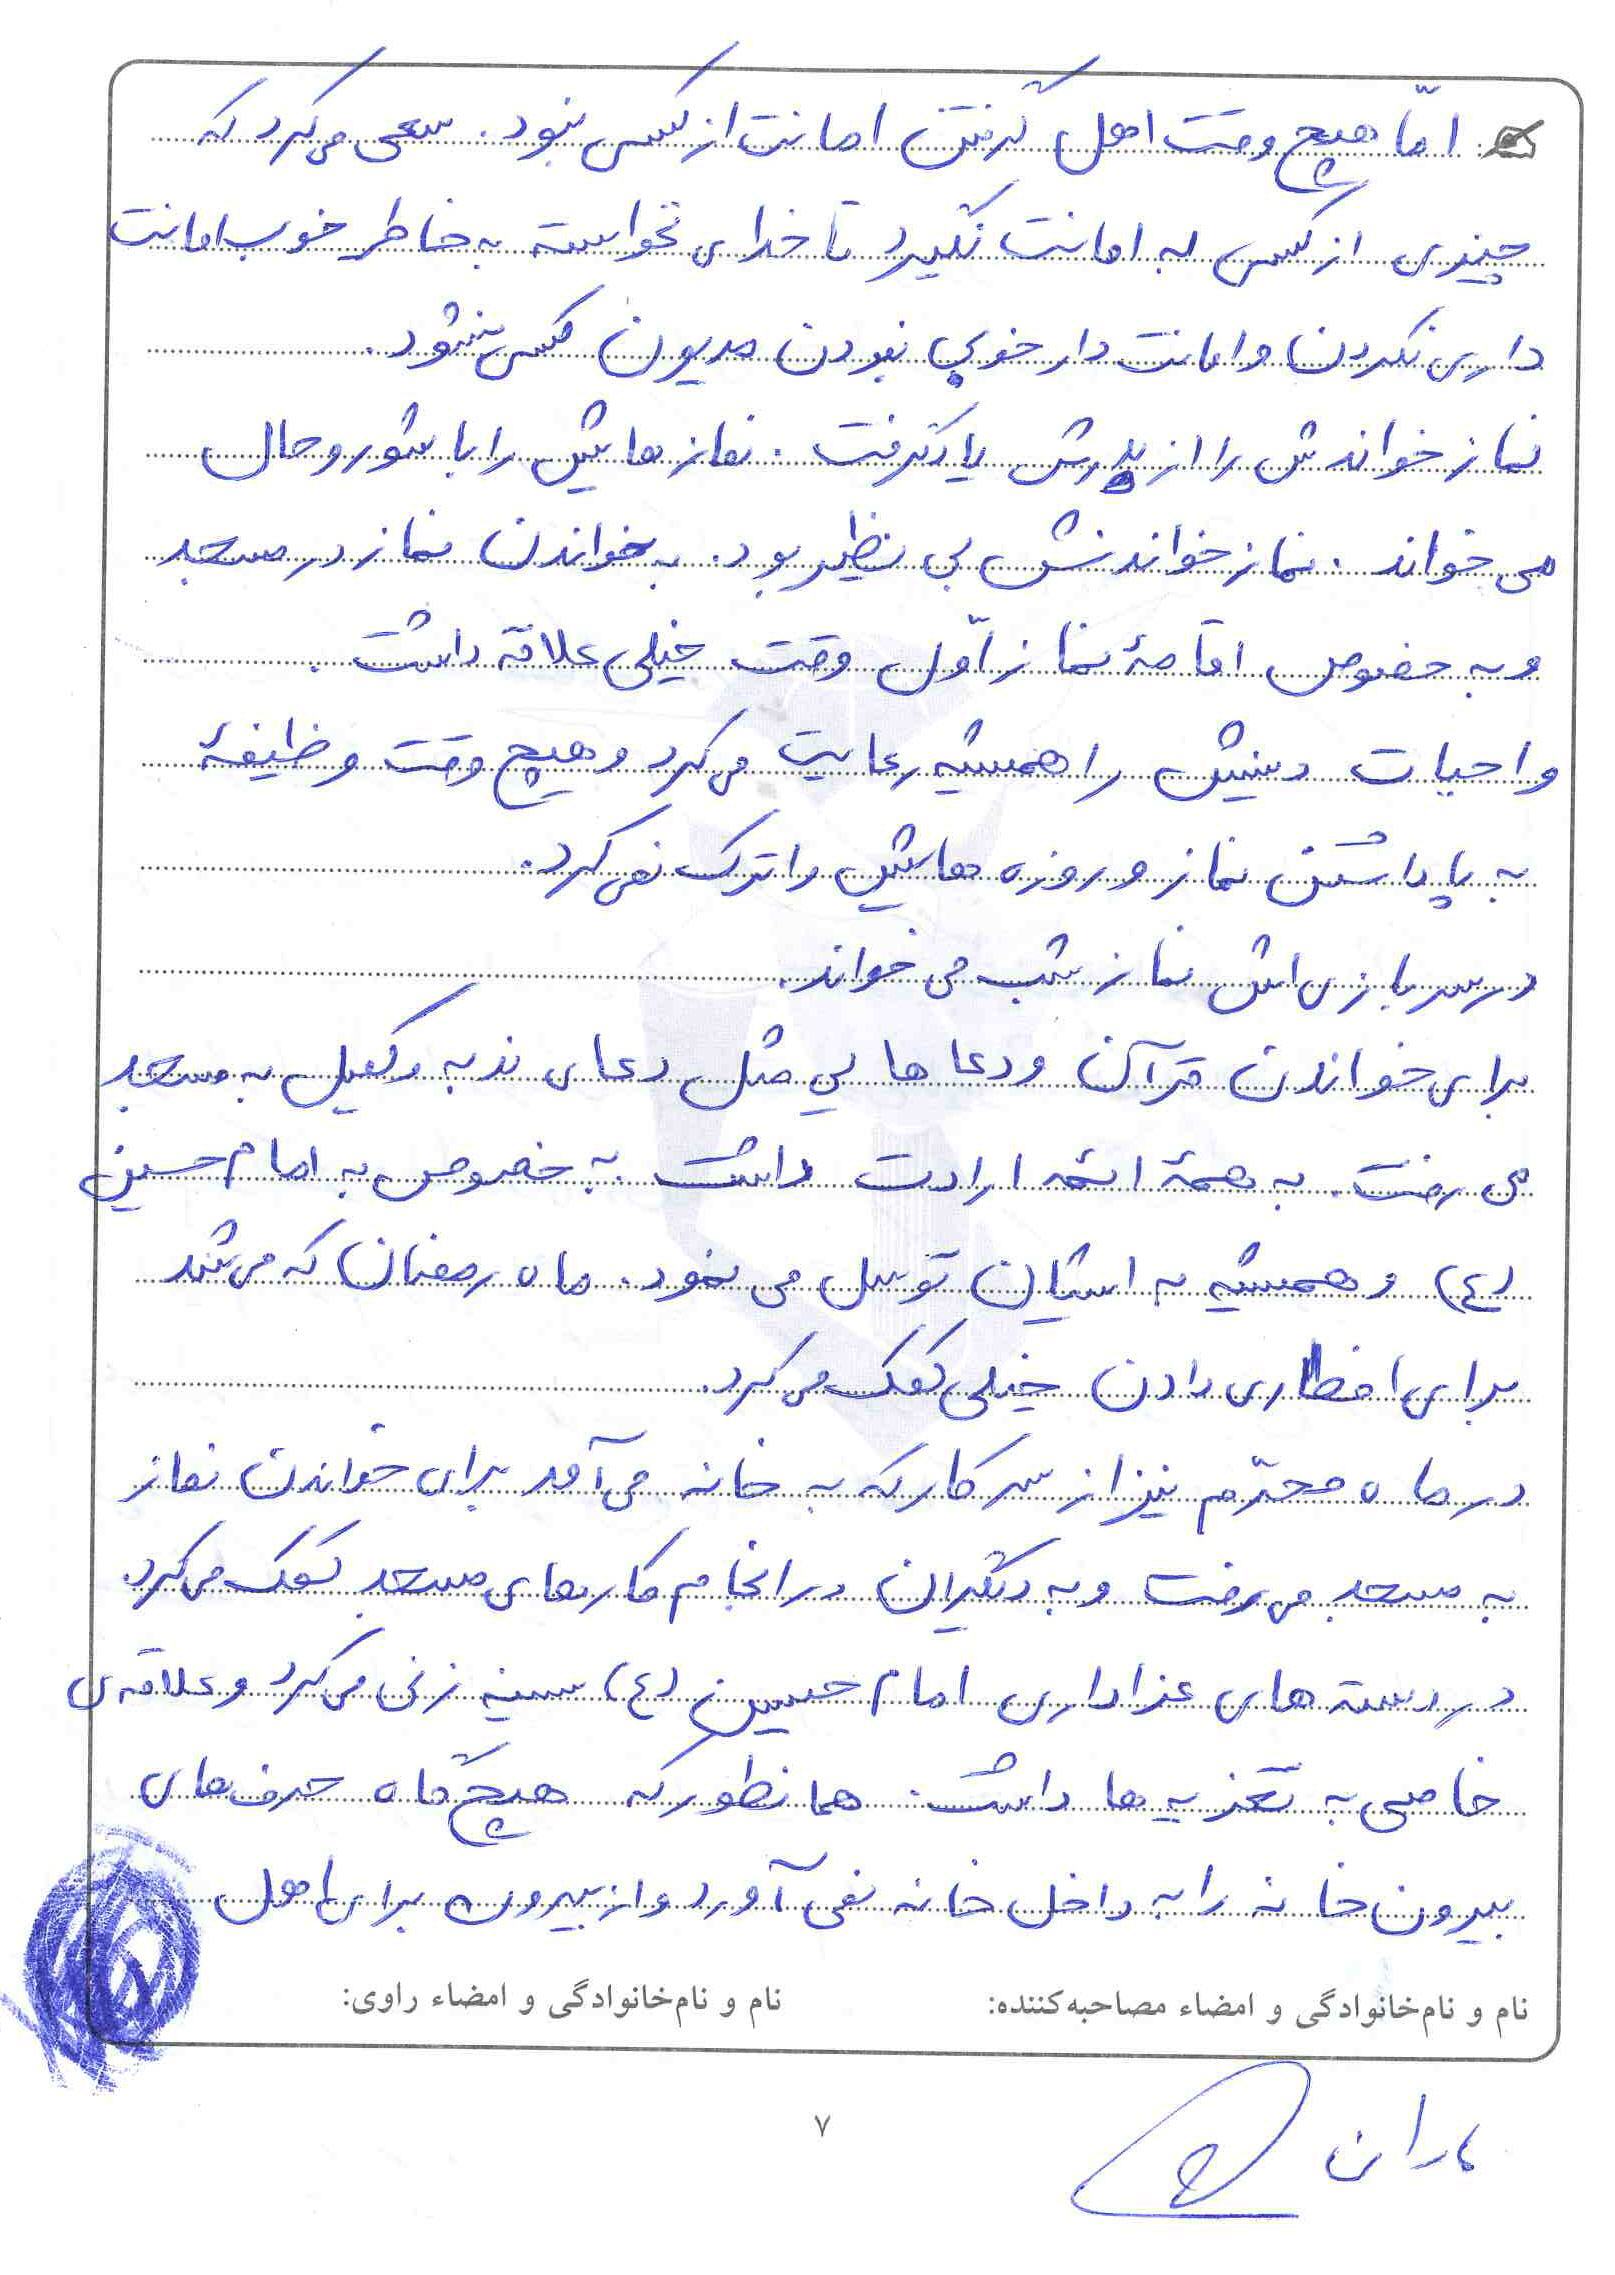 امّا هیچ وقت اهل گرفتن امانت از کسی نبود. سعی می‌کرد که
چیزی از کسی به امانت نگیرد تا خدای نخواسته به خاطر خوب امانت
داری نکردن و امانت دار خوبی نبودن مدیون کسی نشود.
نماز خواندش را از پدرش یاد گرفت. نمازهایش را با شور و حال
می خواند. نماز خواندنش بی نظیر بود. به خواندن نماز در مسجد
و به خصوص اقامهٔ نماز اوّل وقت خیلی علاقه داشت.
واجبات دینیش را همیشه رعایت می‌کرد و هیچ وقت وظیفهٔ
به پا داشتن نماز و روزه هایش را ترک نمی کرد.
در سربازی اش نماز شب می خواند.
برای خواندن قرآن و دعا هایی مثل دعای ندبه و کمیل به مسجد
می رفت. به همهٔ ائمه ارادت داشت به خصوص به امام حسین
(ع) و همیشه به ایشان توسل می نمود. ماه رمضان که می شد
برای افطاری دادن خیلی کمک می کرد.
در ماه محترم نیز از سر کار که به خانه می آمد برای خواندن نماز
به مسجد می رفت و به دیگران در انجام کارهای مسجد کمک می کرد.
در دسته های عزاداری امام حسین (ع) سینه زنی می کرد و علاقه ی
خاصی به تعزیه ها داشت. همانطور که هیچ گاه حرف های
بیرون خانه را به داخل خانه نمی آورد و از بیرون برای اهل
نام و نام‌خانوادگی و امضاء مصاحبه‌کننده:
نام و نام‌خانوادگی و امضاء راوی:
۷